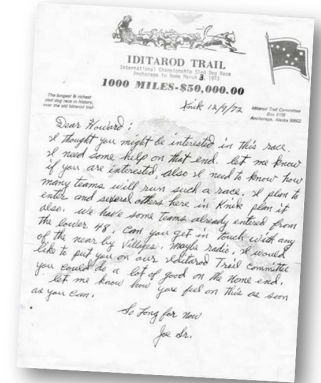 IDITAROD TRAIL
International Championship Sled Dog Race
Anchorage to Nome March 3, 1973
1000 MILES-$50,000.00
The longest & richest
sled dog race in history,
over the old Iditarod trail
Iditarod Trail Committee
Anchorage, Alaska
Knik 12/9/72
Dear Howard:
I thought you might be interested in this race.
I need some help on that end. let me know
if you are interested, also I need to know how
many teams will run such a race. I plan to
enter and several others here in Knik plan it
also. We have some teams already entered from
the lower 48. Can you get in touch with any
of the near by Villages. maybe radio. I would
like to put you on our Iditarod Trail Committee
you could do a lot of good on the Nome end.
let me know how you feel on this as soon
as you can.
So Long for now
Joe Sr.